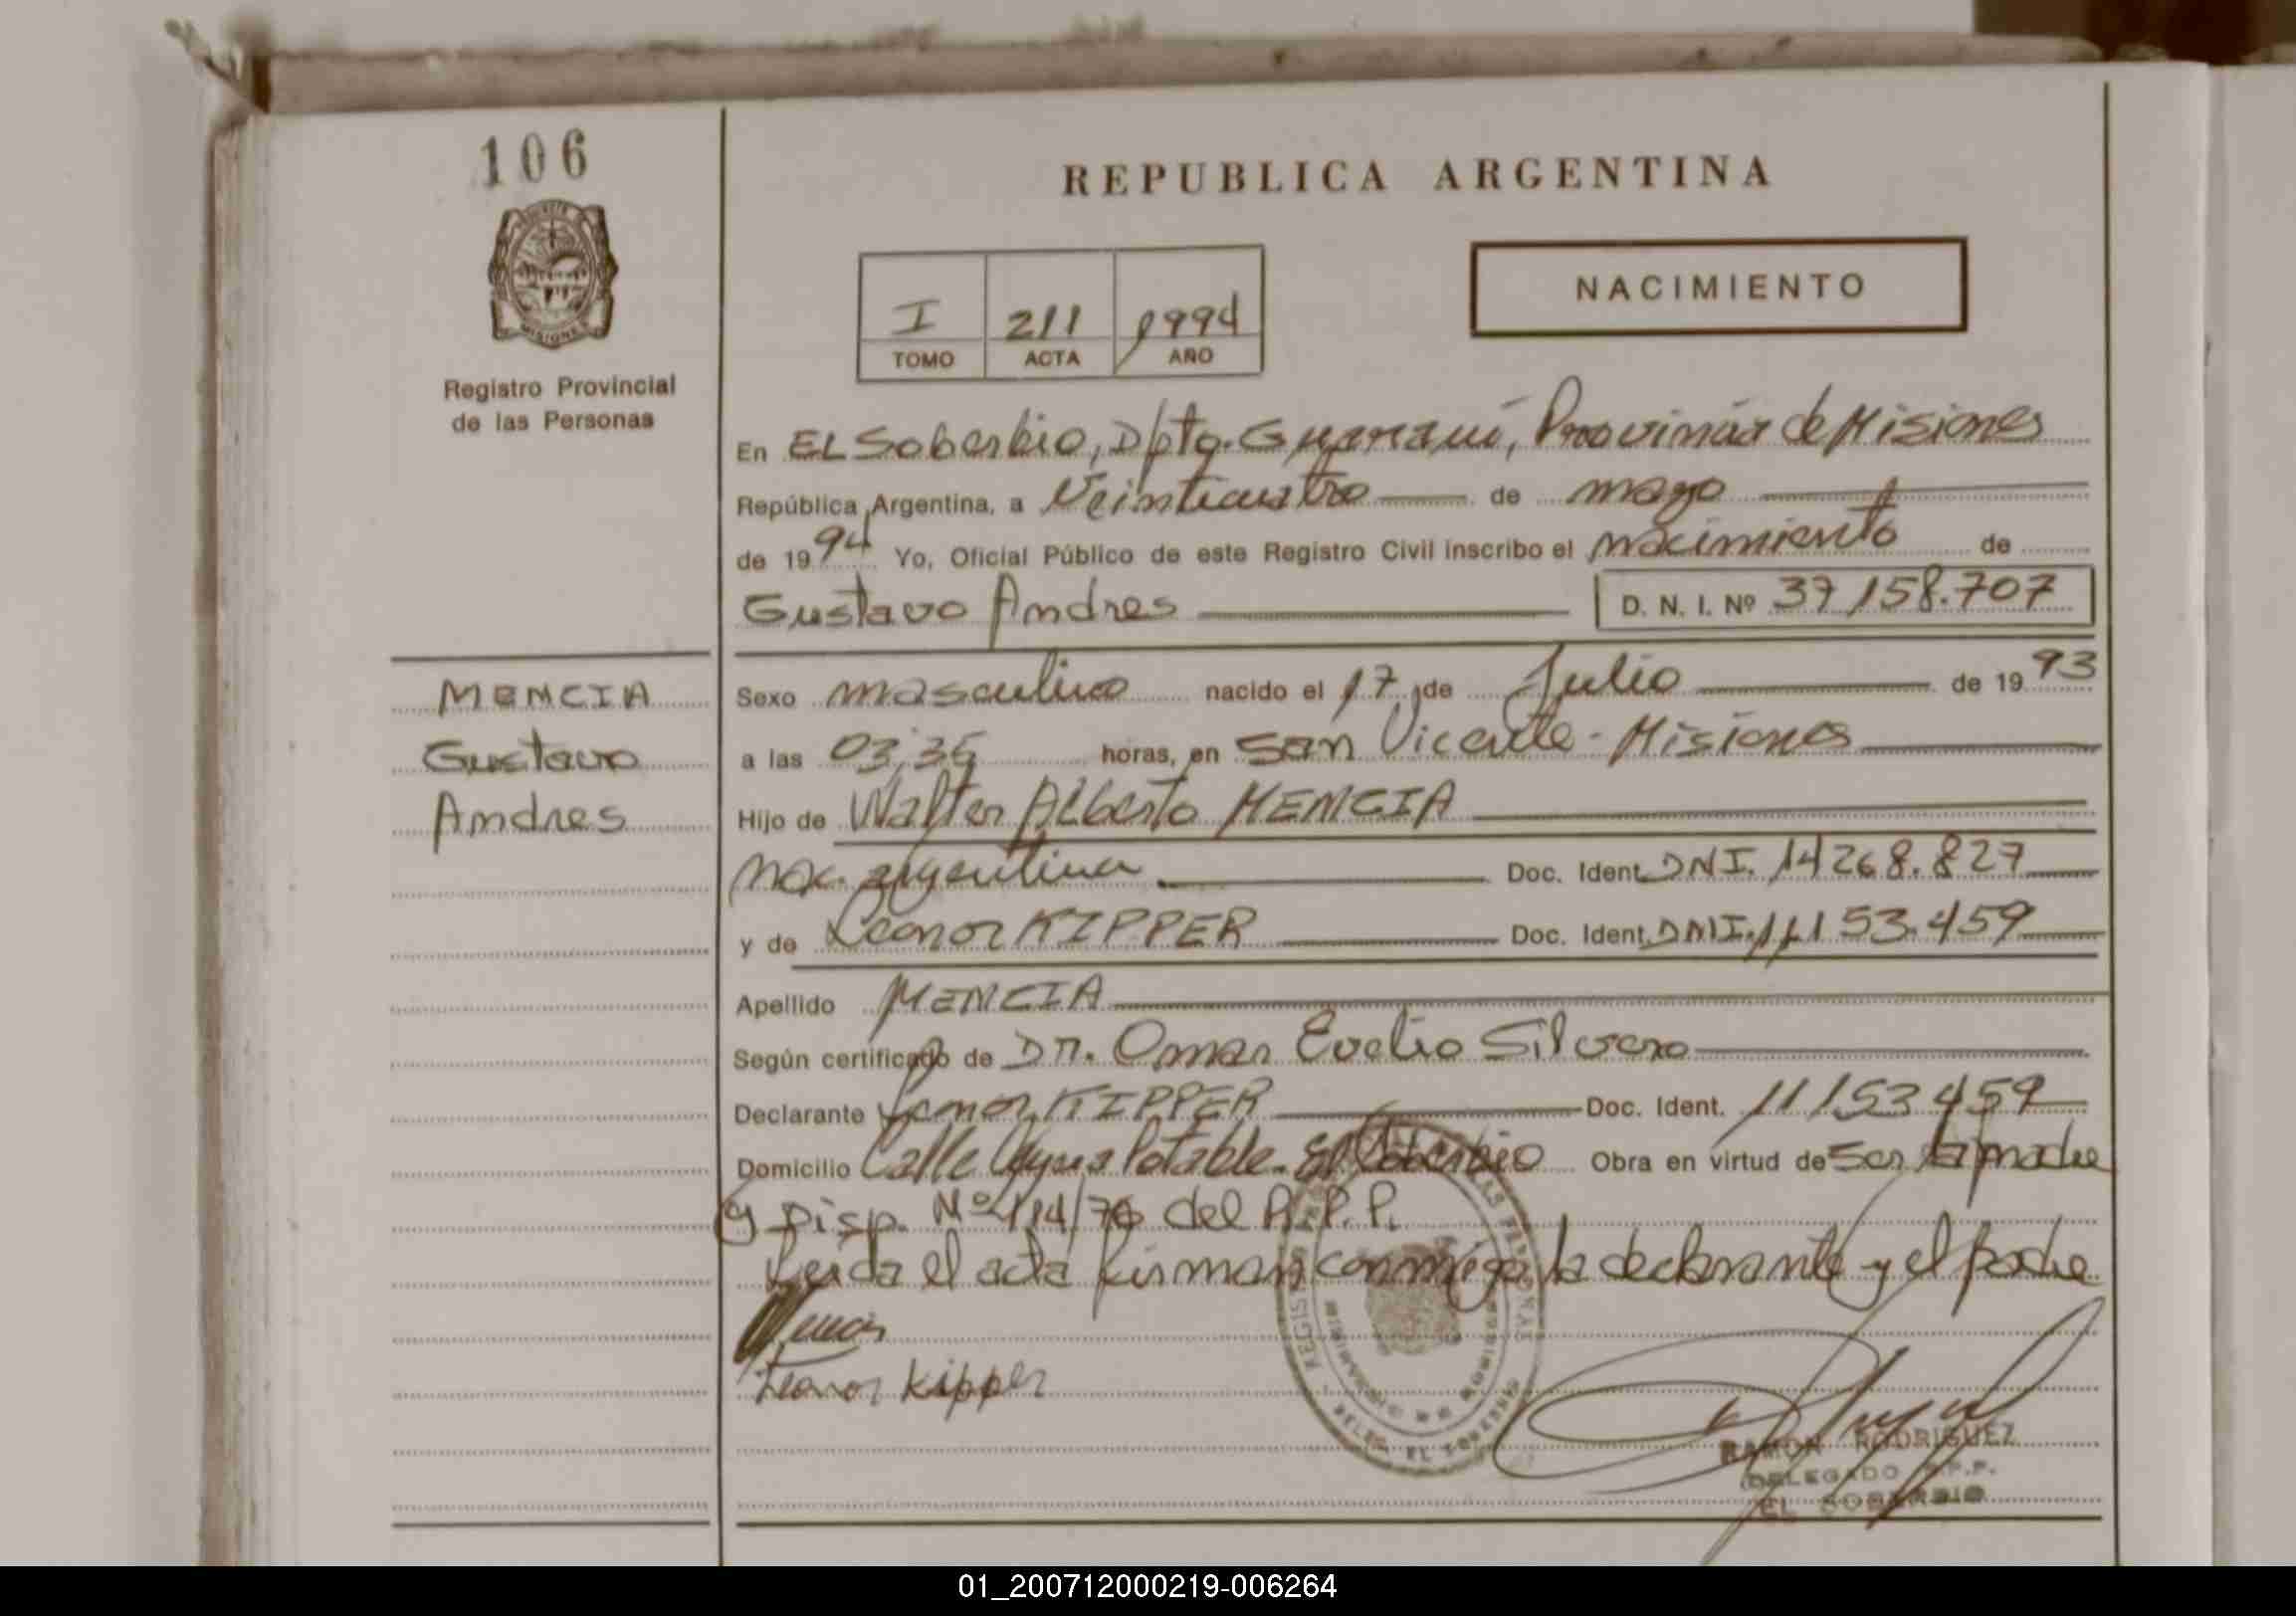 106
REPUBLICA ARGENTINA
NACIMIENTO
I 211 1994
TOMO ACTA AÑO
Registro Provincial
de las Personas
En EL Soberbio, Dpto. Guaraní, Provincia de Misiones
República Argentina, a Veinticuatro de mayo
de 1994 Yo, Oficial Público de este Registro Civil inscribo el nacimiento de
Gustavo Andres D. N. I. Nº 37158.707
MENCIA
Gustavo
Andres
Sexo masculino nacido el 17 de Julio de 1993
a las 03,35 horas, en San Vicente - Misiones
Hijo de Walter Alberto MENCIA
Nac. argentina Doc. Ident. DNI. 14268.827
y de Leonor KIPPER Doc. Ident. DNI. 11153.459
Apellido MENCIA
Según certificado de Dr. Omar Evelio Silvero
Declarante Leonor KIPPER Doc. Ident. 11153459
Domicilio Calle Agua Potable - El Soberbio Obra en virtud de ser la madre
y Disp. Nº 114/76 del R.P.P.
Leida el acta firman conmigo la declarante y el padre
Leonor Kipper
REGISTRO DE LAS PERSONAS
DELEG. EL SOBERBIO
RAMON RODRIGUEZ
DELEGADO R.P.P.
EL SOBERBIO
01_200712000219-006264